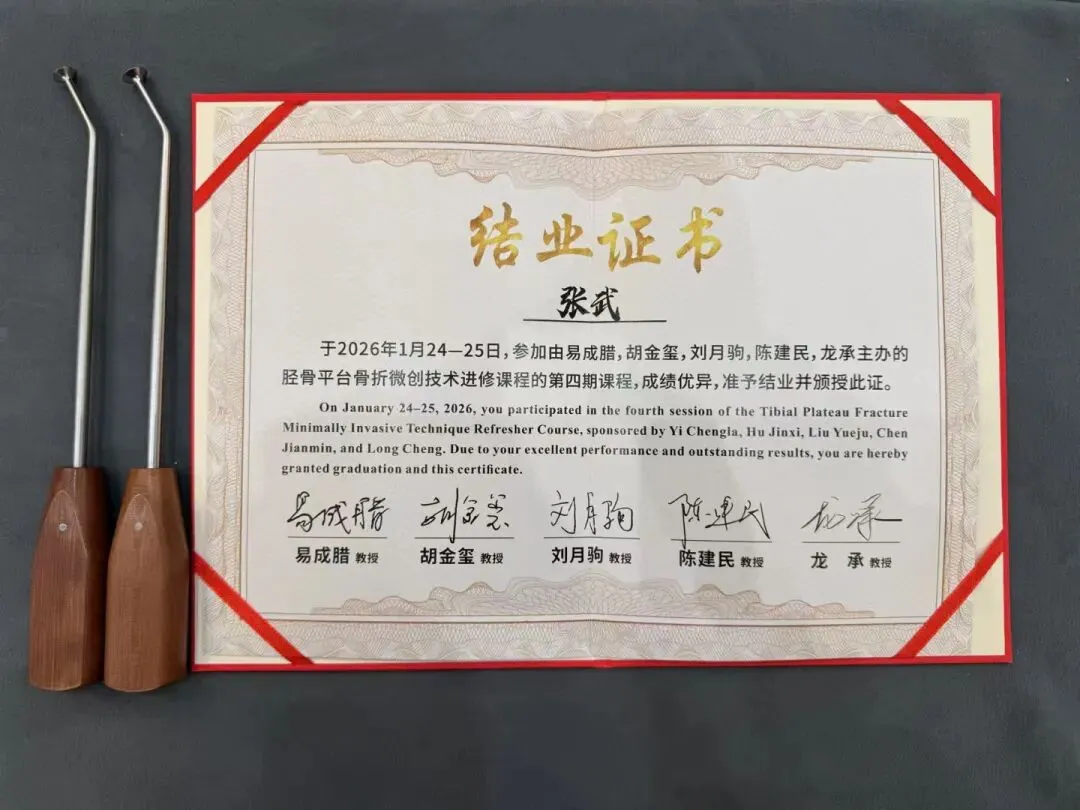 结业证书
张武
于2026年1月24—25日,参加由易成腊,胡金玺,刘月驹,陈建民,龙承主办的
胫骨平台骨折微创技术进修课程的第四期课程,成绩优异,准予结业并颁授此证。
On January 24–25, 2026, you participated in the fourth session of the Tibial Plateau Fracture
Minimally Invasive Technique Refresher Course, sponsored by Yi Chengla, Hu Jinxi, Liu Yueju, Chen
Jianmin, and Long Cheng. Due to your excellent performance and outstanding results, you are hereby
granted graduation and this certificate.
易成腊 胡金玺 刘月驹 陈建民 龙承
易成腊 教授 胡金玺 教授 刘月驹 教授 陈建民 教授 龙 承 教授